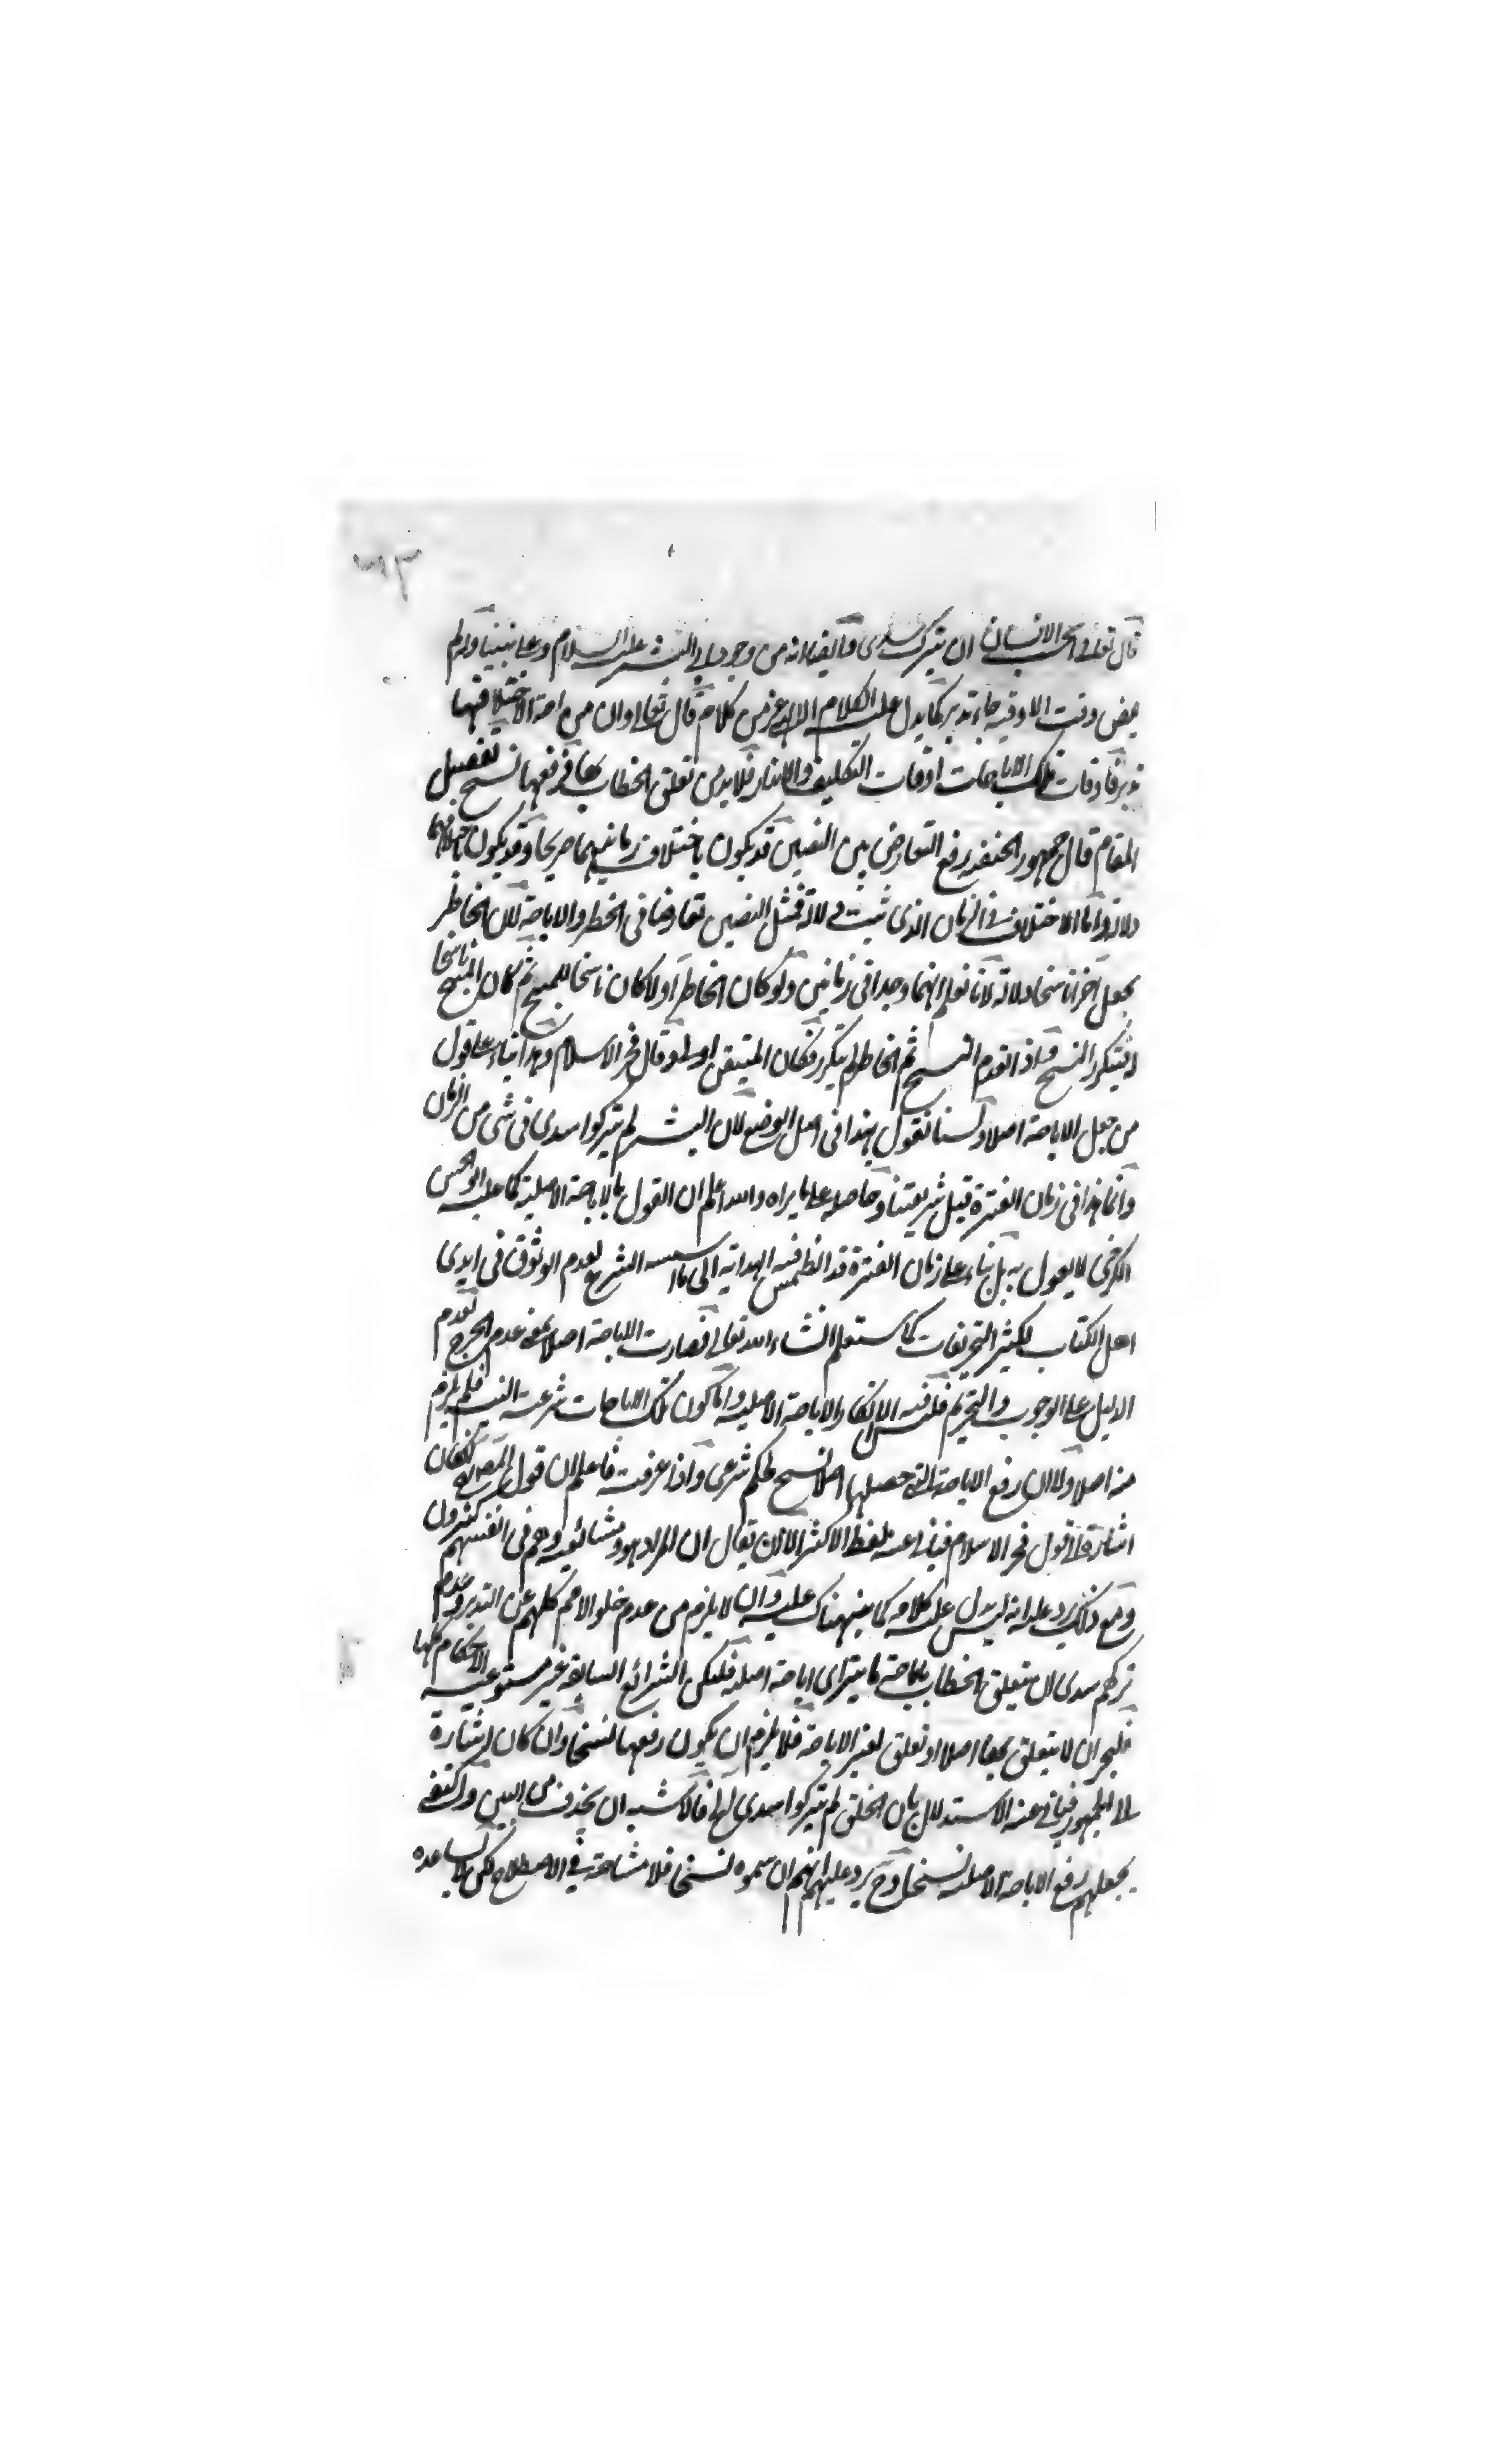 قال تعالى ايحسب الانسان ان يترك سدى وايضا انه من وجود ابى البشر عليه السلام وعلى نبينا ولم
يمض وقت الا وفيه جاء نذير كما يدل عليه الكلام الالهى عز من كلامه قال تعالى وان من امة الا خلا فيها
نذير فاوقات تلك الاباحات اوقات التكليف والانذار فلا بد من تعلق الخطاب بها فرفعها نسخ تفصيل
المقام قال جمهور الحنفية رفع التعارض بين النصين قد يكون باختلاف زمانيهما صريحا وقد يكون باختلافهما
دلالة واما الاختلاف فى الزمان الذى ثبت دلالة فمثل النصين تعارضا فى الحظر والاباحة لان الحاظر
يجعل آخرا ناسخا دلالة لانا نعلم انهما وجدا فى زمانين ولو كان الحاظر اولا كان ناسخا للمبيح ثم كان المبيح ناسخا
فيتكرر النسخ واذا تقدم المبيح ثم الحاظر لم يتكرر فكان المتيقن اولى وقال فخر الاسلام وهذا بناء على قول
من جعل الاباحة اصلا ولسنا نقول بهذا فى اصل الوضع لان البشر لم يتركوا سدى فى شى من الزمان
وانما هذا فى زمان الفترة قبل شريعتنا وحاصله على ما يراه والله اعلم ان القول بالاباحة الاصلية كما عليه ابو الحسن
الكرخى لا يعول به بل بناء على زمان الفترة قد انطمس فيه الهداية الى ما اسسه الشرع لعدم الوثوق فى ايدى
اهل الكتاب لكثير التحريفات كما ستعلم انشاء الله تعالى فصارت الاباحة اصلا بمعنى عدم الحرج لعدم
الدليل على الوجوب والتحريم فليس فيه الا انكار الاباحة الاصلية واما كون تلك الاباحات شرعية فلم يلزم
منه اصلا ولا ان رفع الاباحة التى حصلها اصلا نسخ لحكم شرعى واذا عرفت فاعلم ان قول المصنف ان كان
اشارة الى قول فخر الاسلام فينافى عنه بلفظ الاكثر الا ان يقال ان المراد هو ومشائخه وهم فى انفسهم كثيرون
ومع ذلك يرد عليه انه ليس يدل عليه كلامه كما بينه هناك عليه وان لا يلزم من عدم خلو الامم كلهم عن النذير وعدم
تركهم سدى ان يتعلق الخطاب باباحة ما يترائى اباحة اصلية فليكن الشرائع السابقة غير مستوعبة الاحكام كلها
فليجز ان لا يتعلق بها اصلا او تعلق بغير الاباحة فلا يلزم ان يكون رفعها نسخا وان كان اشارة
الى الجمهور فينافى عنه الاستدلال بان الخلق لم يتركوا سدى فالاشبه ان يحذف من البين واكتفى
بجعلهم رفع الاباحة الاصلية نسخا وح يرد عليهم انهم ان سموه نسخا فلا مشاحة فى الاصطلاح لكن لا يساعده